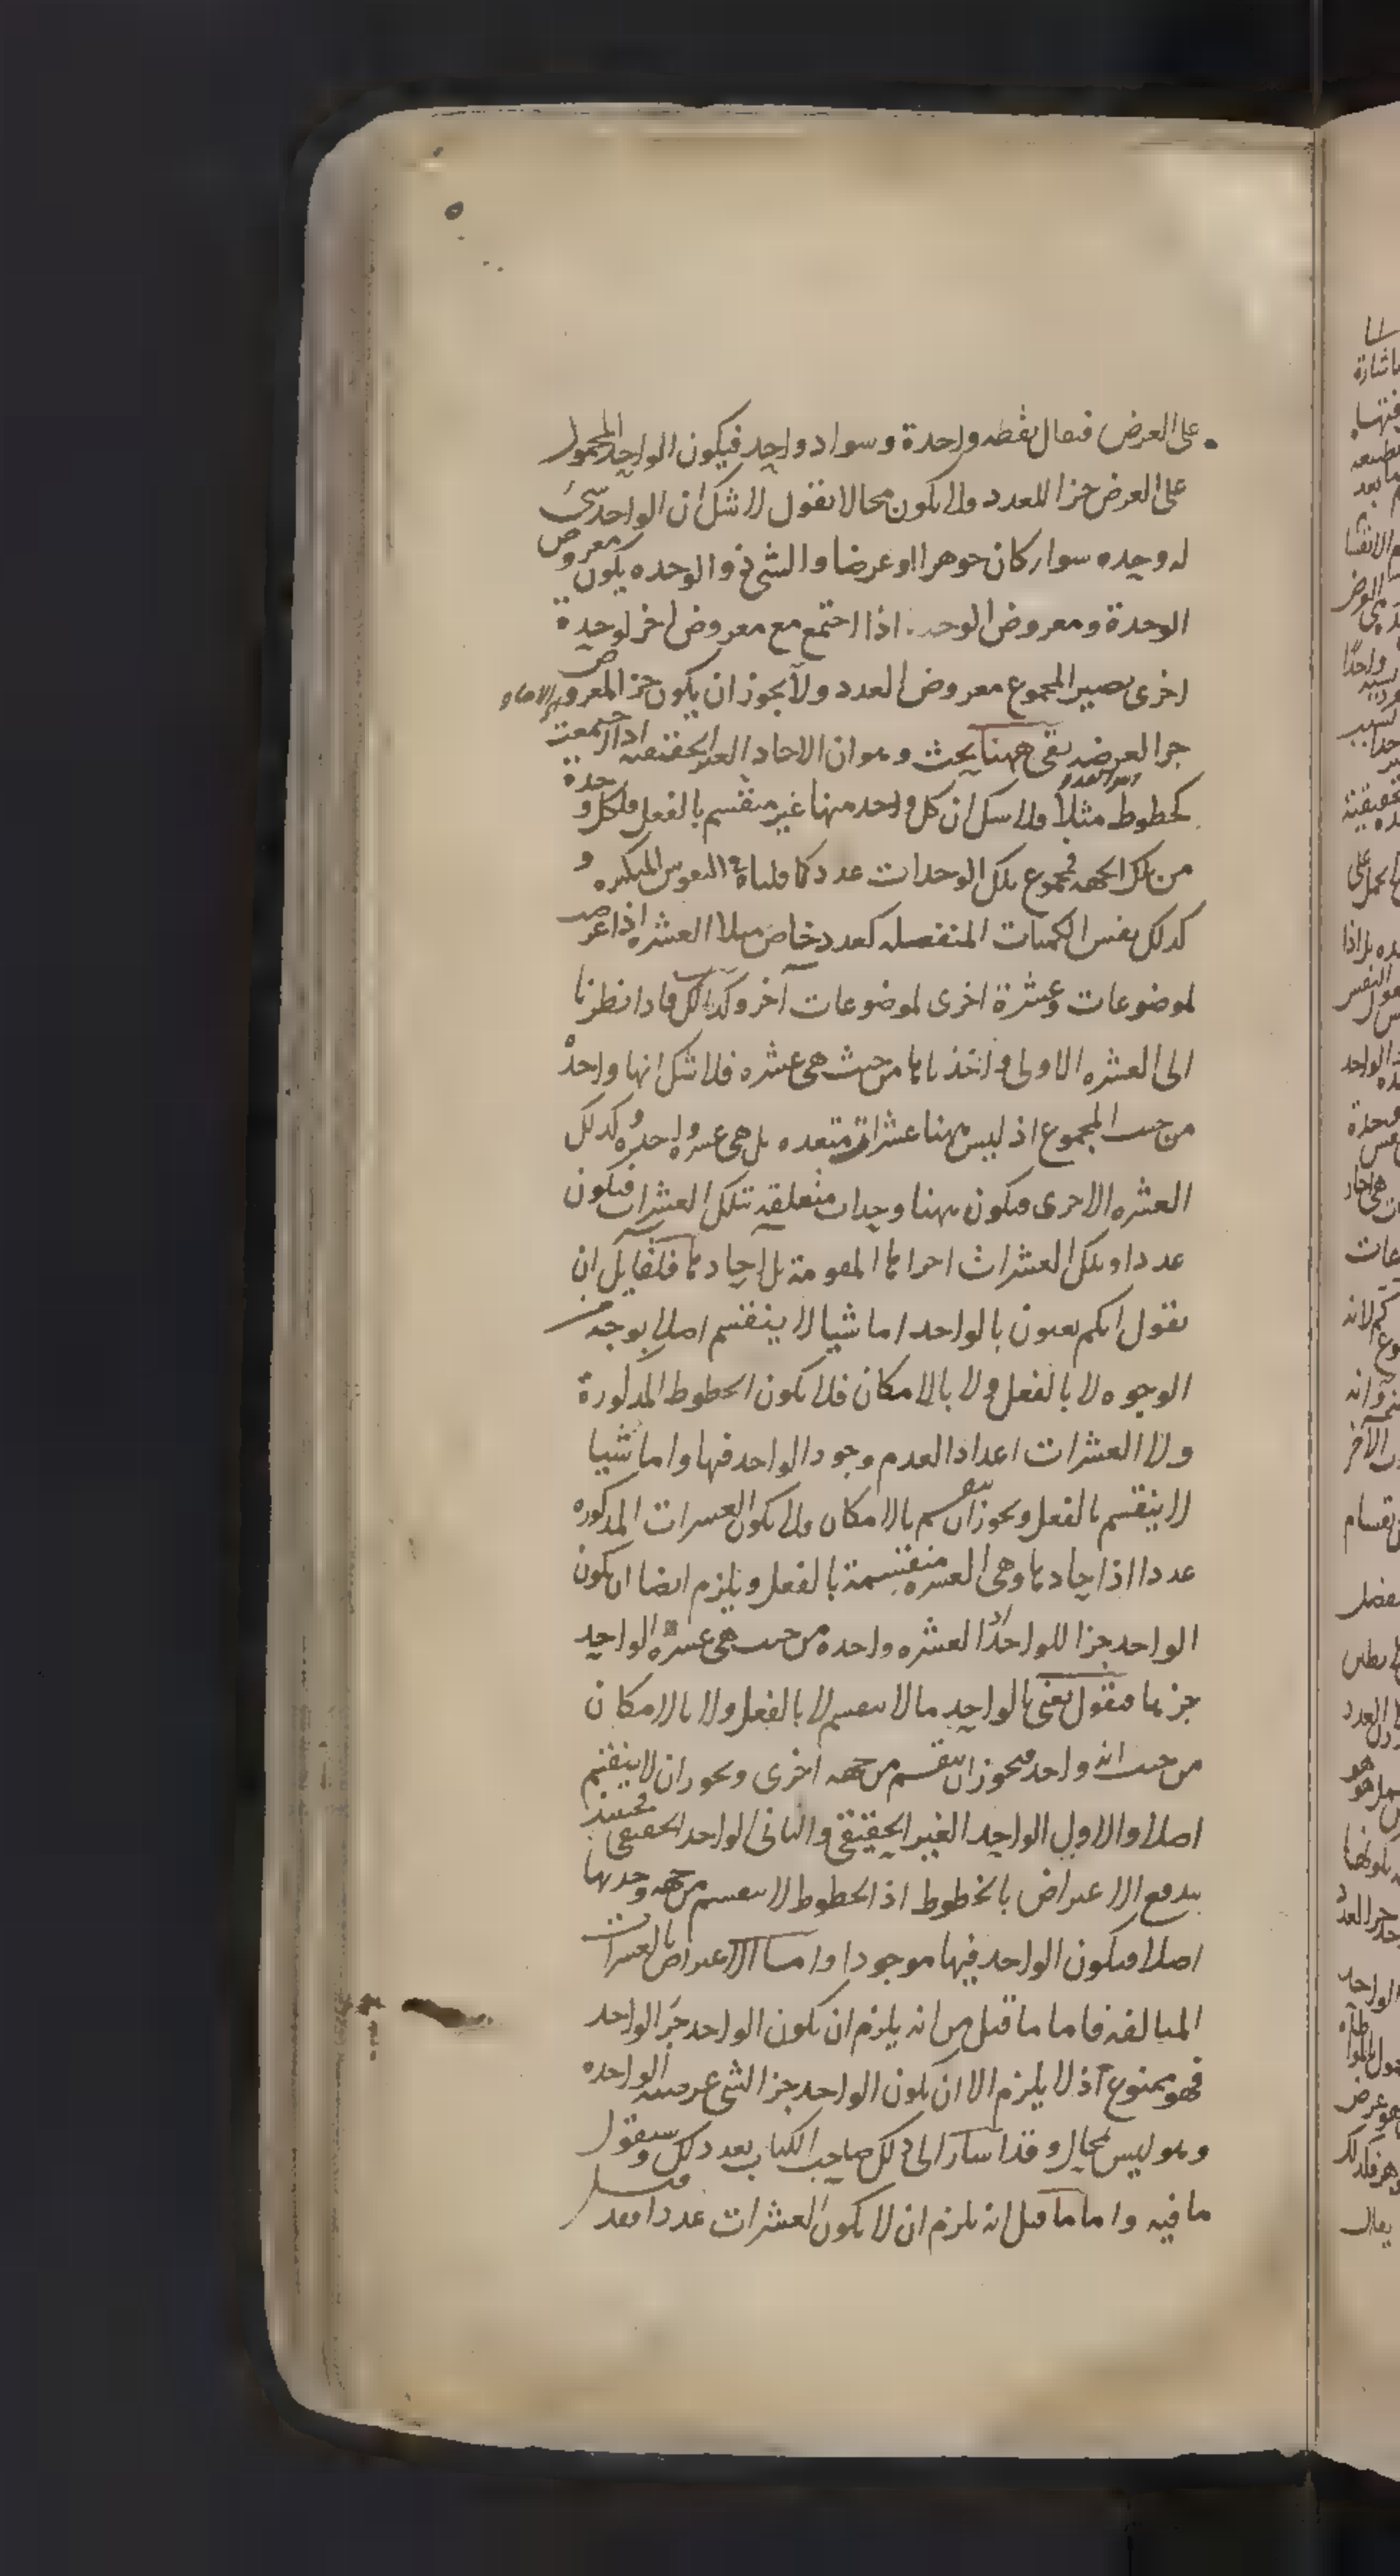 على العرض فيقال نقطه واحدة وسواد واحد فيكون الواحد المحمول
على العرض جزا للعدد ولا يكون محالا نقول لا شك ان الواحد شئ
له وحده سواء كان جوهرا او عرضا والشئ ذو الوحده يكون معروض
الوحدة ومعروض الوحدة اذا اجتمع مع معروض اخر لوحدة
اخرى يصير المجموع معروض العدد ولا يجوز ان يكون جزا لمعروض
جزا لعرضه بقى ههنا بحث وهو ان الاحاد الغير الحقيقيه اذا اجتمعت
كخطوط مثلا ولا شك ان كل واحد منها غير منقسم بالفعل ولكل وحدة
من تلك الجهه فمجموع تلك الوحدات عدد كما قلناه فى النفوس المتكثره و
كذلك نفس الكميات المنفصله كعدد خاص مثلا العشره اذا عرضت
لموضوعات وعشرة اخرى لموضوعات آخر وكذلك فاذا نظرنا
الى العشره الاولى من حيث هى عشره فلا شك انها واحدة
من حيث المجموع اذ ليس ههنا عشرات متعدده بل هى عشره واحده وكذلك
العشره الاخرى فيكون ههنا وحدات متعلقه بتلك العشرات فيكون
عددا وتلك العشرات اجزاءها المقومة بل احادها فلقايل ان
نقول انكم تعنون بالواحد اما شيا لا ينقسم اصلا بوجه من
الوجوه لا بالفعل ولا بالامكان فلا يكون الخطوط المذكورة
ولا العشرات اعدادا لعدم وجود الواحد فيها واما شيا
لا ينقسم بالفعل ويجوز ان ينقسم بالامكان ولا يكون العشرات المذكوره
عددا اذ احادها وهى العشره منقسمة بالفعل ويلزم ايضا ان يكون
الواحد جزا للواحد اذ العشره واحدة من حيث هى عشرة والواحد
جزءها فنقول نعنى بالواحد ما لا ينقسم لا بالفعل ولا بالامكان
من حيث انه واحد فيجوز ان ينقسم من جهه اخرى ويجوز ان لا ينقسم
اصلا والاول الواحد الغير الحقيقى والثانى الواحد الحقيقى فحينئذ
يندفع الاعتراض بالخطوط اذ الخطوط لا ينقسم من جهه وحدتها
اصلا فيكون الواحد فيها موجودا واما الاعتراض بالعشرات
المتالفه فاما ما قيل من انه يلزم ان يكون الواحد جزء الواحد
فهو ممنوع اذ لا يلزم الا ان يكون الواحد جزا لشئ عرضته الواحده
وهو ليس بمحال وقد اشار الى ذلك صاحب الكتاب بعد ذلك وسنقول
ما فيه واما ما قيل انه يلزم ان لا يكون العشرات عددا فقد قيل